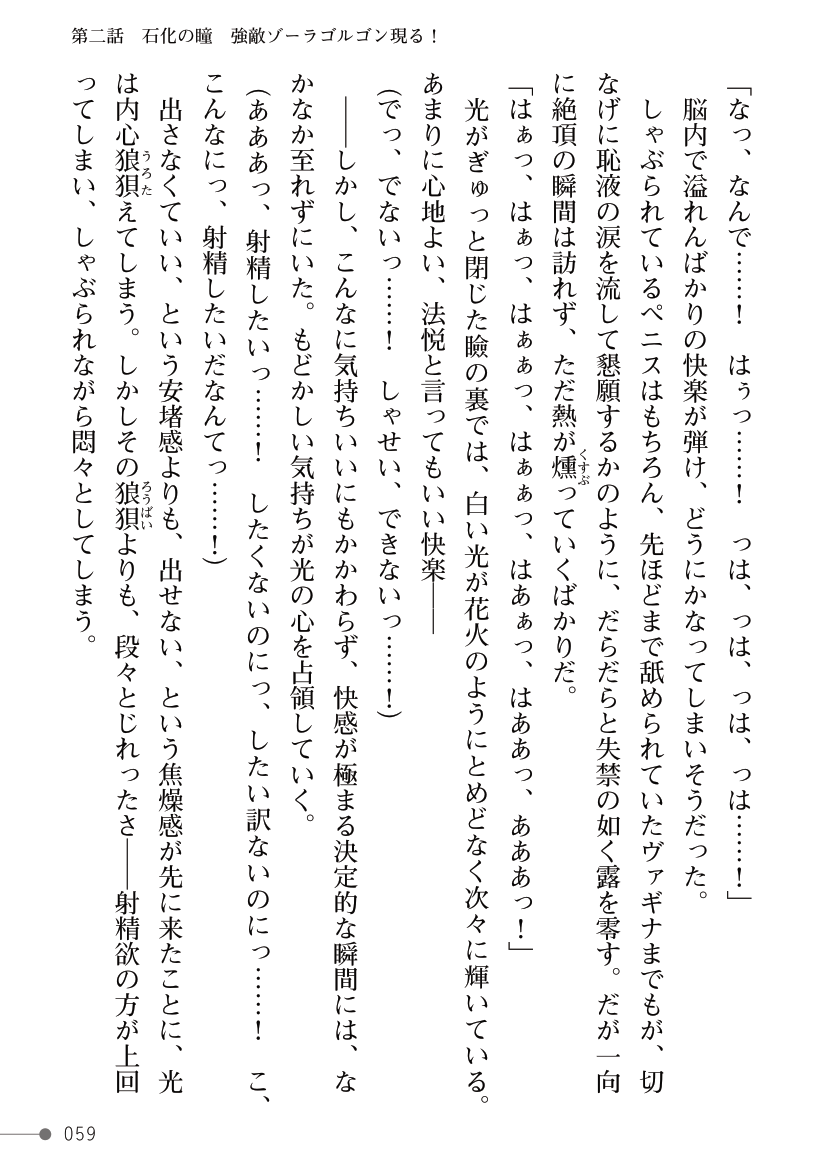 第二話　石化の瞳　強敵ゾーラゴルゴン現る！
「なっ、なんで……！　はぅっ……！　っは、っは、っは、っは……！」
　脳内で溢れんばかりの快楽が弾け、どうにかなってしまいそうだった。
　しゃぶられているペニスはもちろん、先ほどまで舐められていたヴァギナまでもが、切
なげに恥液の涙を流して懇願するかのように、だらだらと失禁の如く露を零す。だが一向
に絶頂の瞬間は訪れず、ただ熱が燻っていくばかりだ。
くすぶ
「はぁっ、はぁっ、はぁぁっ、はぁぁっ、はあぁっ、はああっ、あああっ！」
　光がぎゅっと閉じた瞼の裏では、白い光が花火のようにとめどなく次々に輝いている。
あまりに心地よい、法悦と言ってもいい快楽――
（でっ、でないっ……！　しゃせい、できないっ……！）
　――しかし、こんなに気持ちいいにもかかわらず、快感が極まる決定的な瞬間には、な
かなか至れずにいた。もどかしい気持ちが光の心を占領していく。
（あああっ、射精したいっ……！　したくないのにっ、したい訳ないのにっ……！　こ、
こんなにっ、射精したいだなんてっ……！）
　出さなくていい、という安堵感よりも、出せない、という焦燥感が先に来たことに、光
は内心狼狽えてしまう。しかしその狼狽よりも、段々とじれったさ――射精欲の方が上回
うろた
ろうばい
ってしまい、しゃぶられながら悶々としてしまう。
059